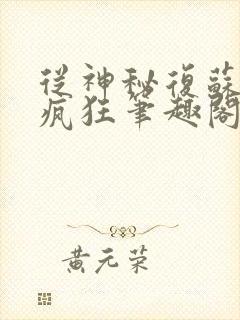 從神秘復蘇
瘋狂筆趣閣
黃元荣